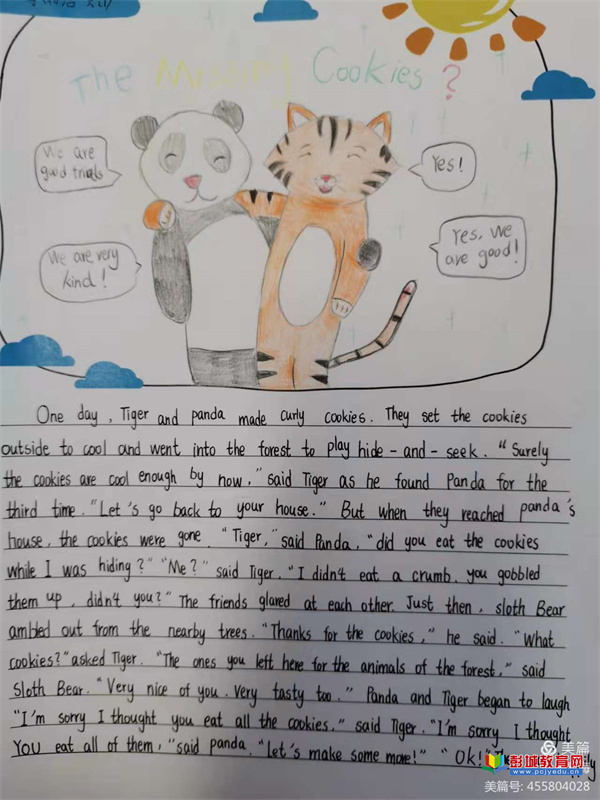 The Missing Cookies?
We are
good trinds
Yes!
We are very
kind!
Yes, we
are good!
One day, Tiger and panda made curly cookies. They set the cookies
outside to cool and went into the forest to play hide-and-seek. "Surely
the cookies are cool enough by now," said Tiger as he found Panda for the
third time. "Let's go back to your house." But when they reached panda's
house, the cookies were gone. "Tiger," said Panda, "did you eat the cookies
while I was hiding?" "Me?" said Tiger. "I didn't eat a crumb. you gobbled
them up, didn't you?" The friends glared at each other. Just then, sloth Bear
ambled out from the nearby trees. "Thanks for the cookies," he said. "What
cookies?" asked Tiger. "The ones you left here for the animals of the forest," said
Sloth Bear. "Very nice of you. Very tasty too." Panda and Tiger began to laugh
"I'm sorry I thought you eat all the cookies," said Tiger. "I'm sorry I thought
You eat all of them," said panda. "Let's make some more!" "Ok!"
美篇
彭城教育网
www.pcjyedu.cn
美篇号: 455804028